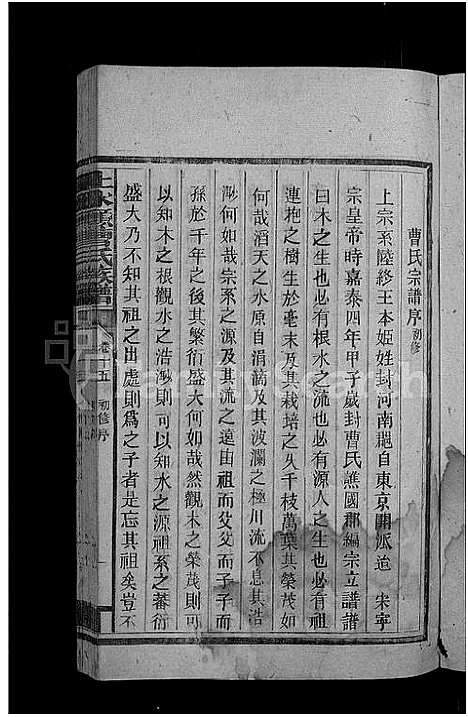 曹氏宗譜序 初修
上宗系陸終王本姬姓封河南䣛自東京開派迨 宋寧
宗皇帝時嘉泰四年甲子歲封曹氏譙國郡編宗立譜譜
曰木之生也有根水之流也有源人之生也必有祖
連抱之樹生於毫末及其栽培之久千枝萬葉其榮茂如
何哉滔天之水原自涓滴及其波瀾之極川流不息其浩
渺何如哉宗系之源及其流之遠由祖而父父而子子而
孫於千年之後其繁衍盛大何如哉然觀木之榮茂則可
以知木之根觀水之浩渺則可以知水之源祖系之蕃衍
盛大乃不知其祖之出處則爲之子者是忘其祖矣豈不
曹氏族譜 卷十五 初修序 一